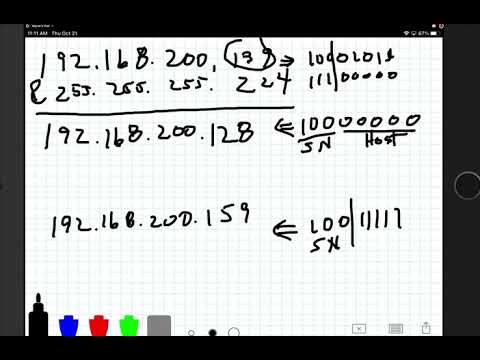 11:11 AM Thu Oct 21 67%
192.168.200.138 ⇒ 100|01010
& 255.255.255.224 111|00000
192.168.200.128 ⇐ 10000000
SN Host
192.168.200.159 ⇐ 100|11111
SN